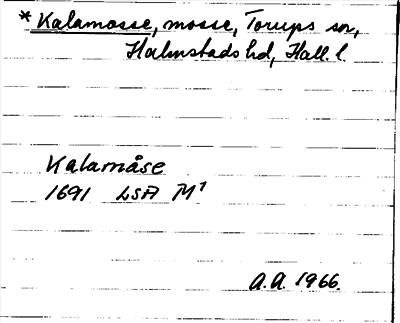 * Kalamosse, mosse, Torups sn,
Halmstads hd, Hall. l.
Kalamåse
1691 LSA M¹
A.A. 1966.